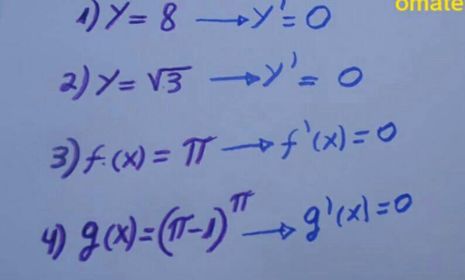 omate
1) y = 8 → y' = 0
2) y = √3 → y' = 0
3) f(x) = π → f'(x) = 0
4) g(x) = (π-1)^π → g'(x) = 0